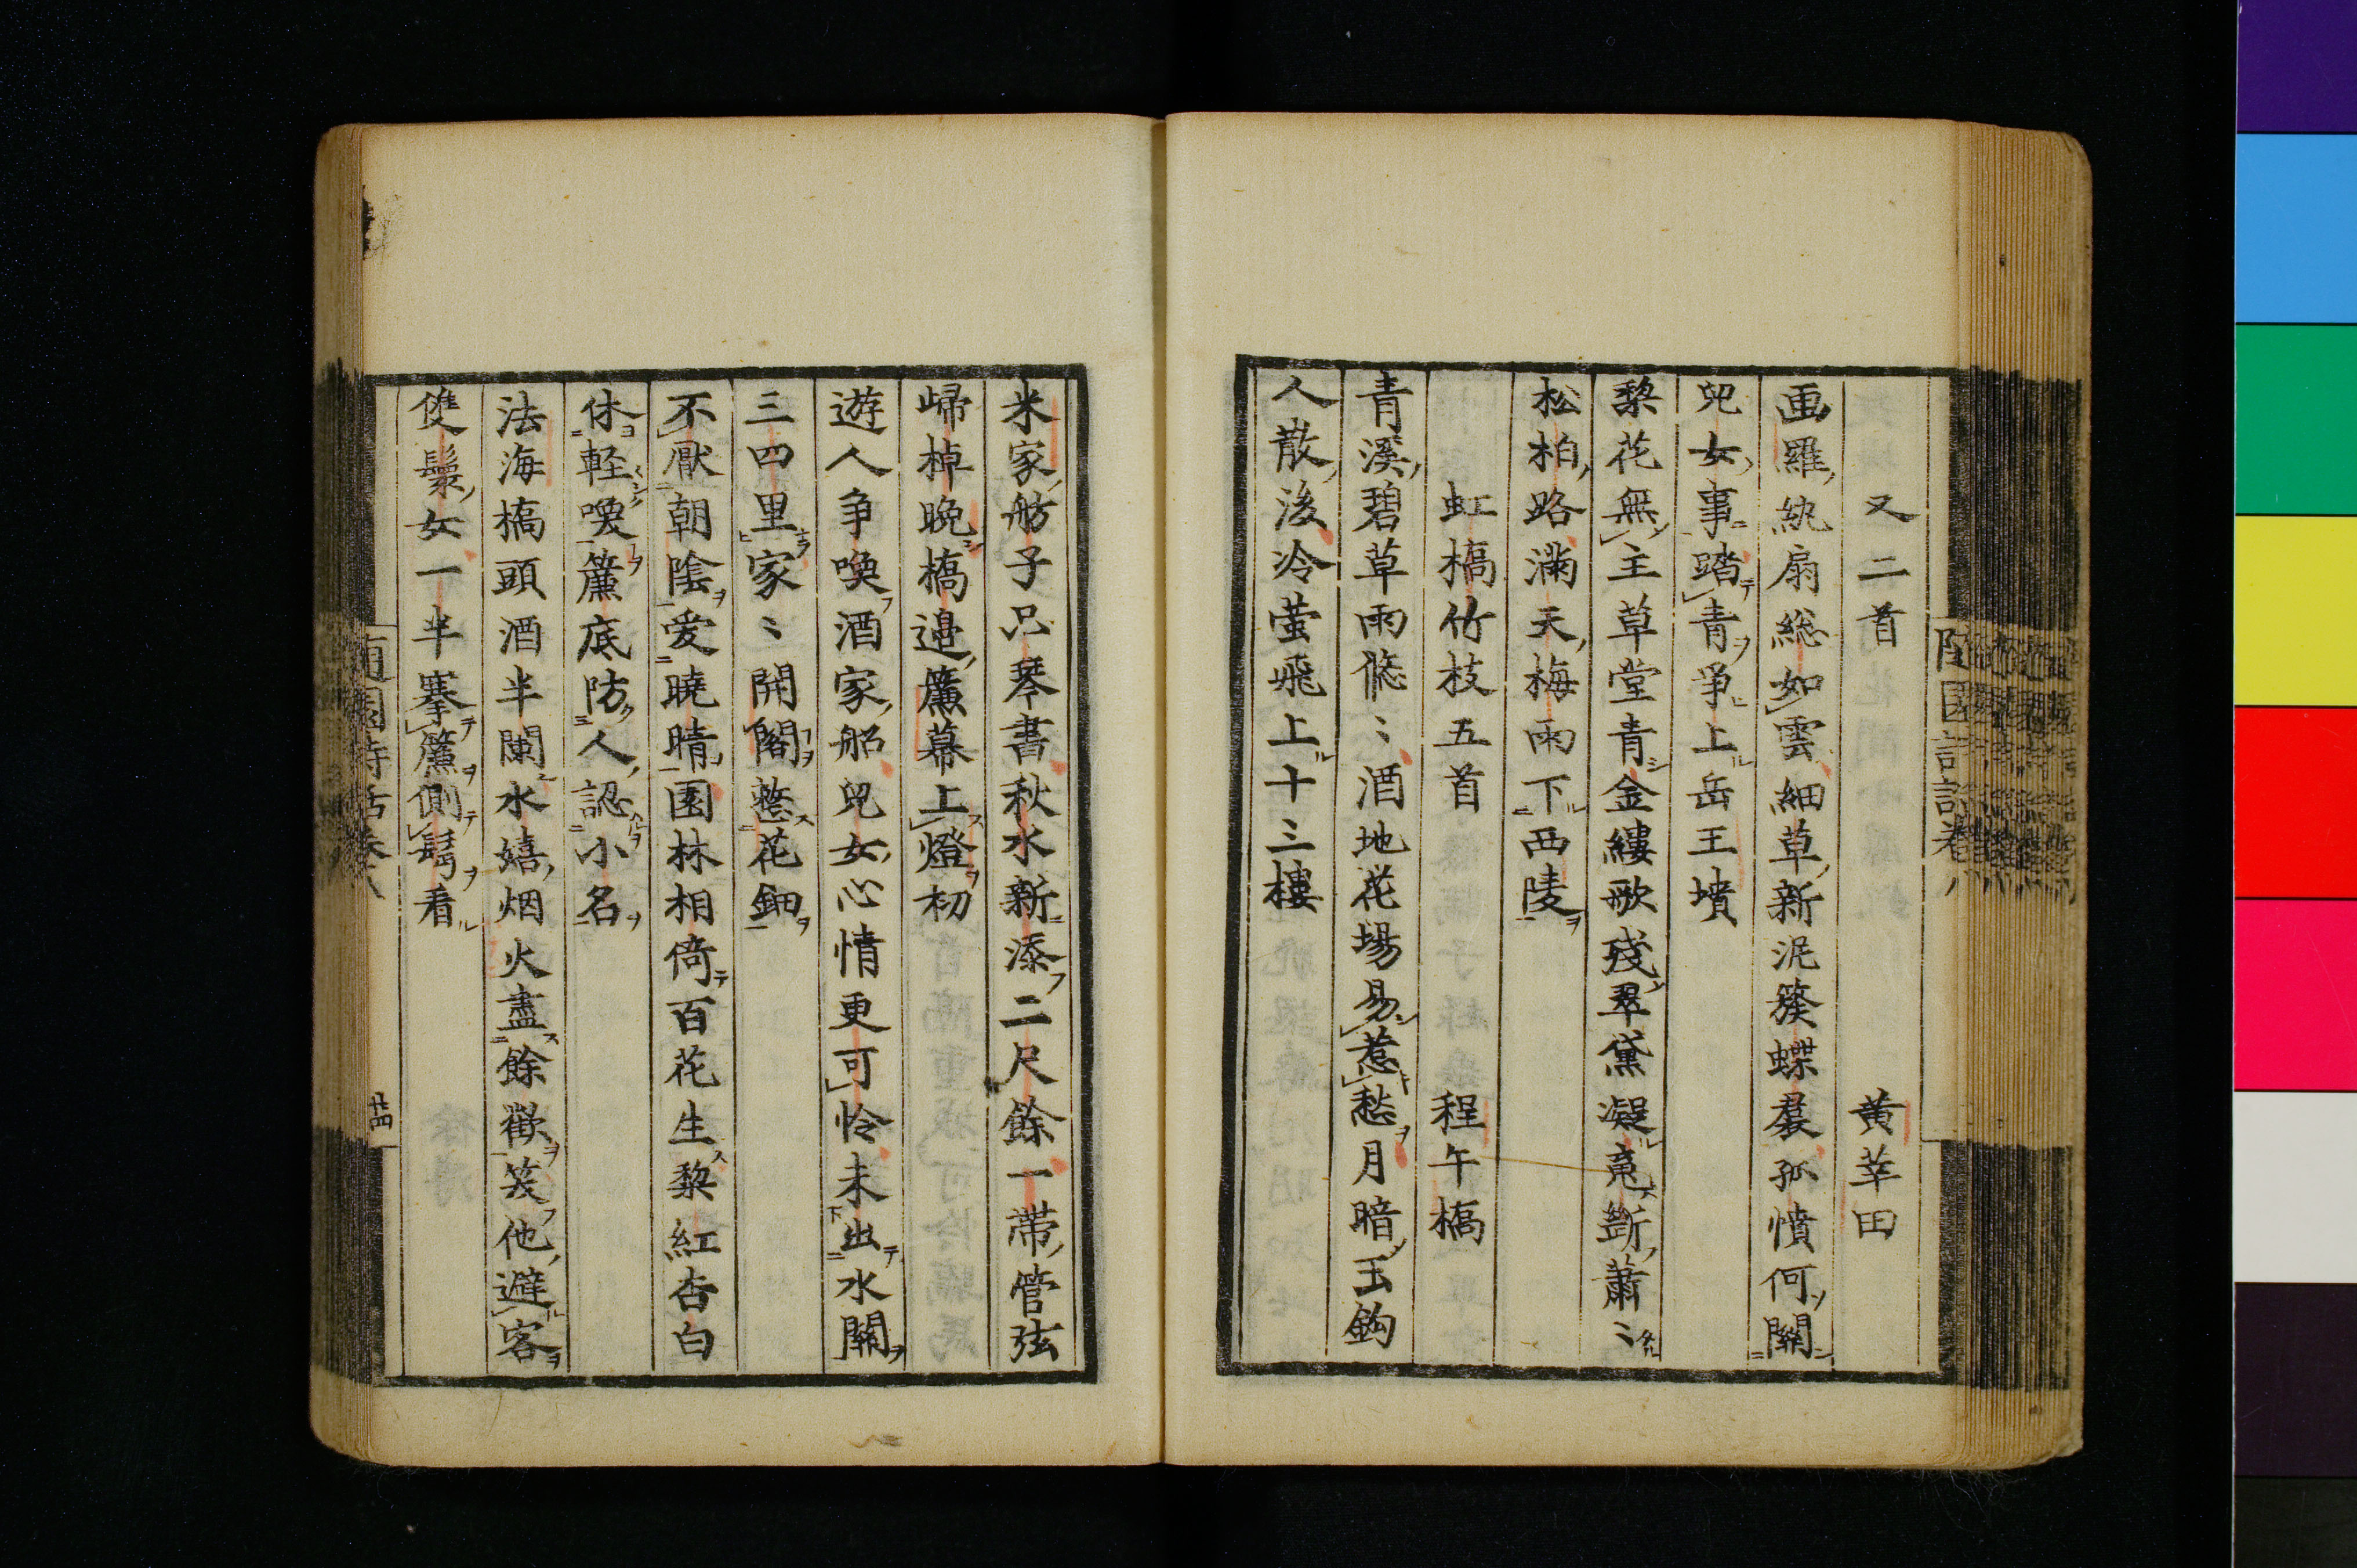 又二首 黄莘田
画羅紈扇総如雲細草新泥簇蝶羣孤憤何關
兒女事踏青爭上岳王墳
梨花無主草堂青金縷歌残翠黛凝䰟斷蕭〻
松柏路滿天梅雨下西陵
虹橋竹枝五首 程午橋
青溪碧草雨悠〻酒地花場易惹愁月暗玉鈎
人散後冷萤飛上十三樓
米家舫子只琴書秋水新添二尺餘一帶管弦
歸棹晚橋邉簾幕上燈初
遊人争喚酒家船兒女心情更可怜未出水關
三四里家〻開閣整花鈿
不厭朝陰爱曉晴園林相倚百花生梨紅杏白
休軽喚簾底防人認小名
法海橋頭酒半闌水嬉烟火盡餘歡笑他避客
雙鬟女一半搴簾側髩看
随園詩話卷八
廿四